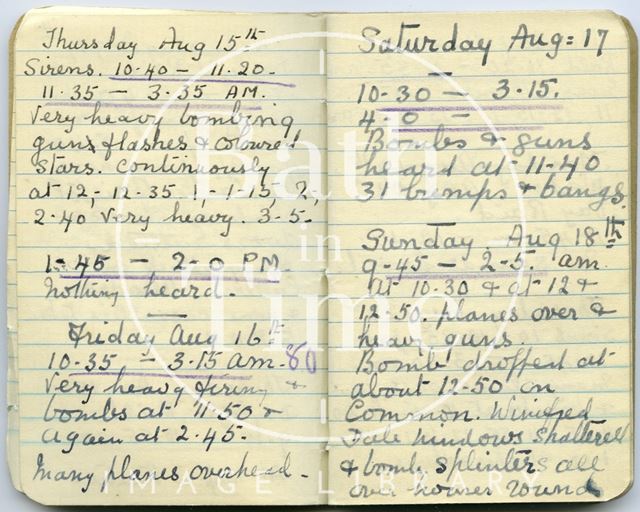 Thursday Aug 15th
Sirens. 10-40 - 11.20.
11.35 - 3.35 AM.
Very heavy bombing
guns flashes & coloured
stars. continuously
at 12,- 12-35 1,- 1-15, 2,
2.40 very heavy. 3-5.
1-45 - 2-0 PM
Nothing heard.
Friday Aug 16th
10-35 - 3.15 am. 80
Very heavy firing &
bombs at 11.50 &
again at 2.45.
Many planes overhead.
Saturday Aug: 17
10-30 - 3.15.
4.0 -
Bombs & guns
heard at 11-40
31 bumps & bangs.
Sunday. Aug 18th
9-45 - 2-5 am
at 10.30 & at 12 &
12-50. planes over &
heavy guns.
Bomb dropped at
about 12-50 on
Common. Winifred
Dale windows shattered
& bomb splinters all
over houses round
Bath
in
Time
IMAGE LIBRARY